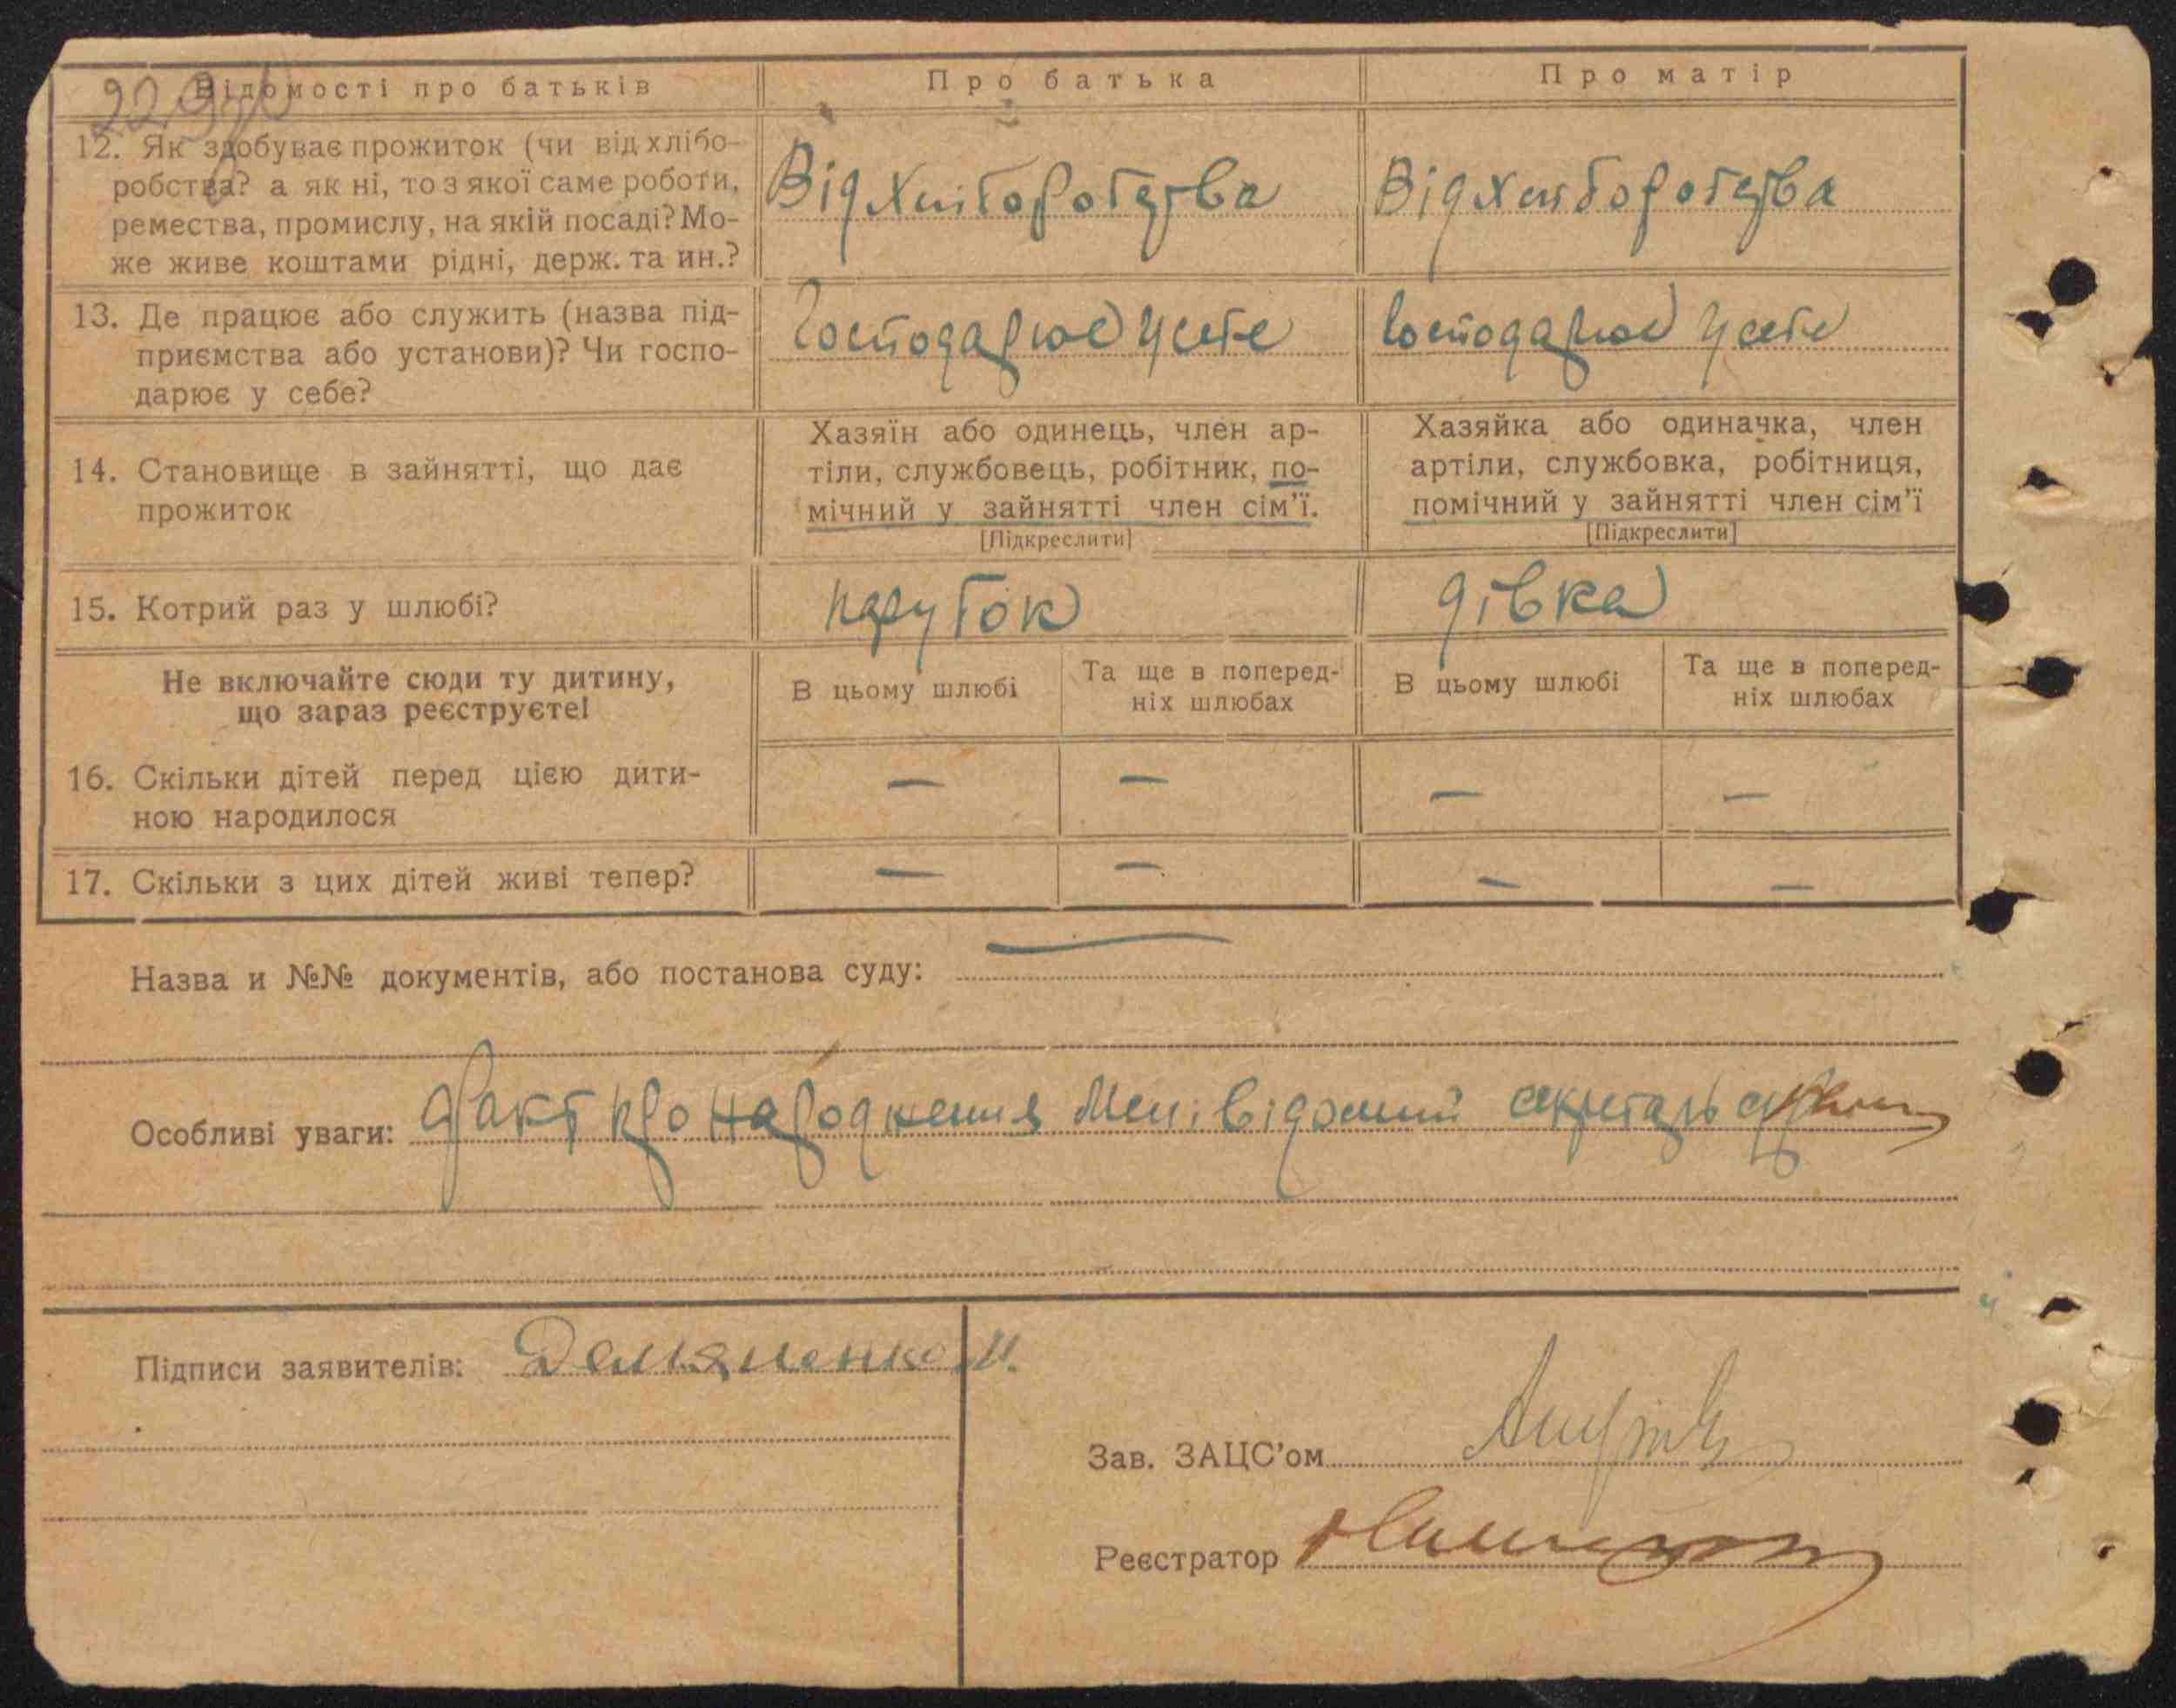 Відомості про батьків
Про батька
Про матір
12. Як здобуває прожиток (чи від хлібо-
робства? а як ні, то з якої саме роботи,
ремества, промислу, на якій посаді? Мо-
же живе коштами рідні, держ. та ин.?
Від хліборобства
Від хліборобства
13. Де працює або служить (назва під-
приємства або установи)? Чи госпо-
дарює у себе?
Господарює у себе
Господарює у себе
14. Становище в зайнятті, що дає
прожиток
Хазяїн або одинець, член ар-
тіли, службовець, робітник, по-
мічний у зайнятті член сім'ї.
[Підкреслити]
Хазяйка або одиначка, член
артіли, службовка, робітниця,
помічний у зайнятті член сім'ї
[Підкреслити]
15. Котрий раз у шлюбі?
парубок
дівка
Не включайте сюди ту дитину,
що зараз реєструєте!
В цьому шлюбі
Та ще в поперед-
ніх шлюбах
В цьому шлюбі
Та ще в поперед-
ніх шлюбах
16. Скільки дітей перед цією дити-
ною народилося
— — — —
17. Скільки з цих дітей живі тепер?
— — — —
Назва и №№ документів, або постанова суду: —
Особливі уваги: Факт про народження мені відомий секретарь
Підписи заявителів: Демяненко М.
Зав. ЗАЦС'ом
Реєстратор